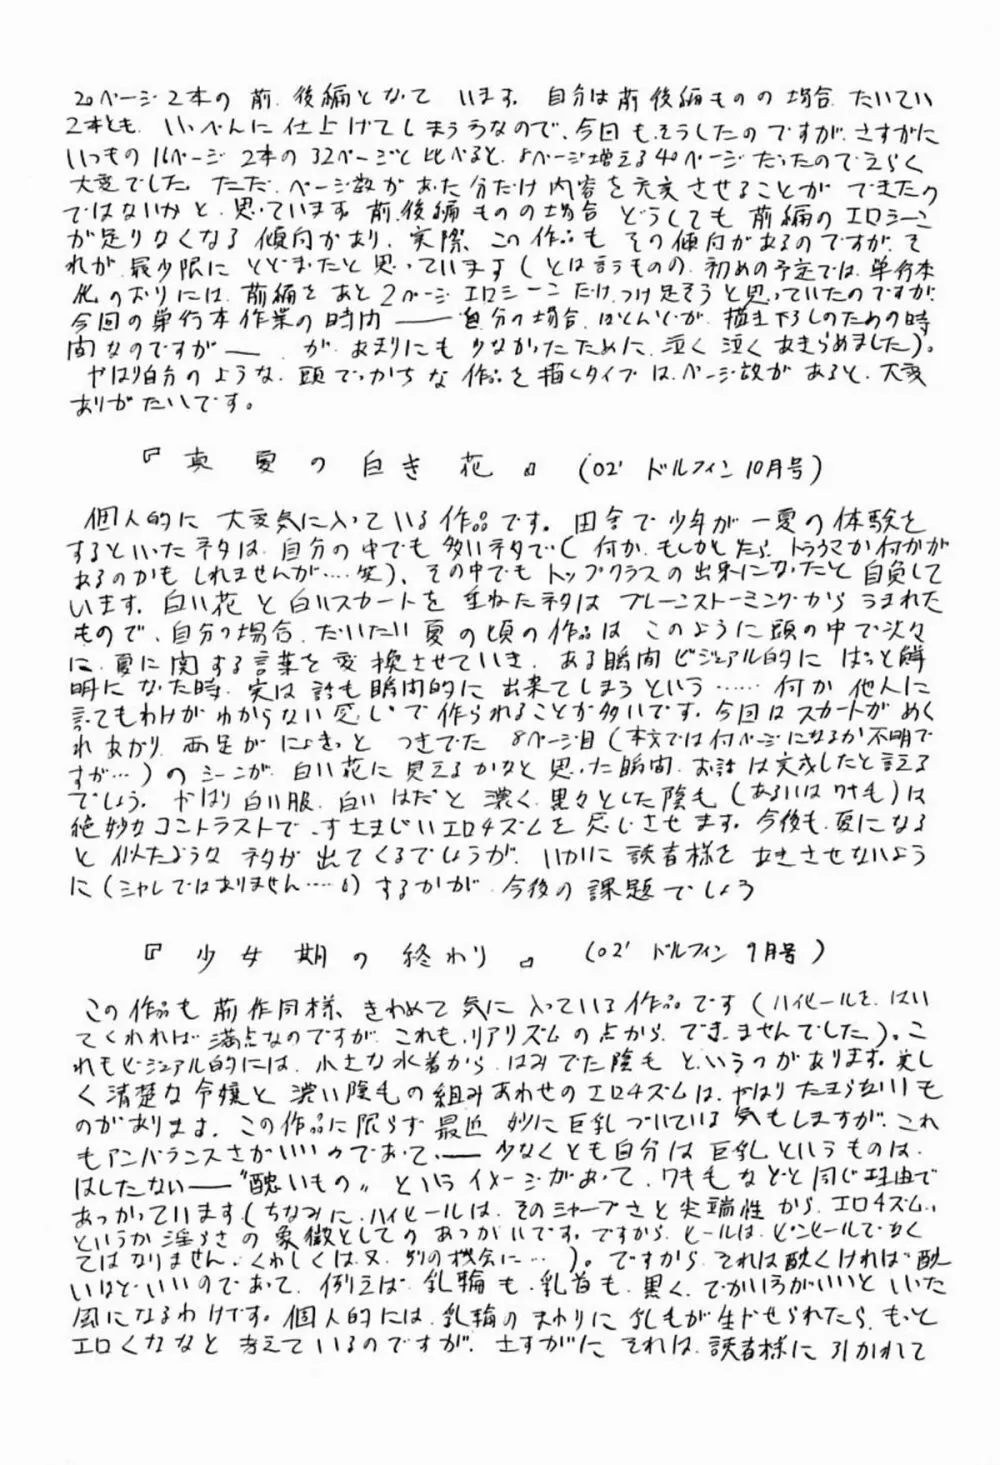 20ページ2本の前、後編となって います。自分は前後編ものの場合、たいてい
2本とも、いっぺんに仕上げてしまうので、今回もそうしたのですが、さすがに
いつもの16ページ2本の32ページと比べると、8ページ増える40ページだったのでえらく
大変でした。ただ、ページ数があった分だけ内容を充実させることができたの
ではないかと、思っています。前、後編ものの場合 どうしても前編のエロシーン
が足りなくなる傾向があり、実際、この作品も その傾向があるのですが、そ
れが、最少限に とどまったと思っています（とは言うものの、初めの予定では、単行本
化のおりには、前編をあと2ページ エロシーンだけ、つけ足そうと思っていたのですが、
今回の単行本作業の時間――自分の場合、ほとんどが、描き下ろしのための時
間なのですが――が、あまりにも少なかったために、泣く泣くあきらめました）。
やはり自分のような、頭でっかちな作品を描くタイプは、ページ数があると、大変
ありがたいです。
『真夏の白き花』（02' ドルフィン10月号）
個人的に 大変気に入っている作品です。田舎で少年が一夏の体験を
するといったネタは、自分の中でも多いネタで（何か、もしかしたら、トラウマか何かが
あるのかもしれませんが‥‥笑）、その中でもトップクラスの出来になったと自負して
います。白い花と白いスカートを重ねたネタは ブレーンストーミングからうまれた
もので、自分の場合、だいたい夏の頃の作品は このように頭の中で次々
に、夏に関する言葉を変換させていき、ある瞬間ビジュアル的に ぱっと鮮
明になった時、実は話も瞬間的に出来てしまうという‥‥‥何か他人に
言ってもわけがわからない感じで作られることが多いです。今回はスカートがめく
れあがり、両足がにょきっと つきでた 8ページ目（本文では何ページになるか不明で
すが‥）のシーンが、白い花に見えるかなと思った瞬間、お話は完成したと言える
でしょう。やはり白い服、白いはだと濃く、黒々とした陰毛（あるいはワキ毛）は
絶妙なコントラストで、すさまじいエロチズムを感じさせます。今後も、夏になる
と似たようなネタが出てくるでしょうが、いかに読者様をあきさせないよう
に（シャレではありません‥‥）するかが、今後の課題でしょう
『少女期の終わり』（02' ドルフィン9月号）
この作品も前作同様、きわめて気に入っている作品です（ハイヒールを、はい
てくれれば満点なのですが、これも、リアリズムの点から、できませんでした）。こ
れもビジュアル的には、小さな水着から、はみでた陰毛というのがあります。美し
く清楚な令嬢と濃い陰毛の組みあわせのエロチズムは、やはりたまらないも
のがあります。この作品に限らず最近、妙に巨乳づいている気もしますが、これ
もアンバランスさがいいのであって、――少なくとも自分は巨乳というものは、
はしたない――“醜いもの”というイメージがあって、ワキ毛などと同じ理由で
あつかっています（ちなみに、ハイヒールは、そのシャープさと尖端性から、エロチズム、
というか淫らさの象徴としてのあつかいです。ですから、ヒールは、ピンヒールでなく
てはなりません。くわしくは又、別の機会に‥）。ですから、それは醜くければ醜
いほどいいのであって、例えば、乳輪も、乳首も、黒く、でかいほうがいいといった
風になるわけです。個人的には、乳輪のまわりに乳毛が生やせられたら、もっと
エロくなるなと考えているのですが、さすがに それは、読者様に引かれて